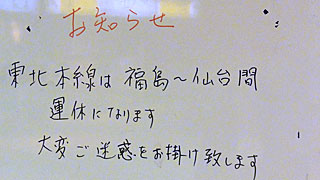 お知らせ
東北本線は福島～仙台間
運休になります
大変ご迷惑をお掛け致します